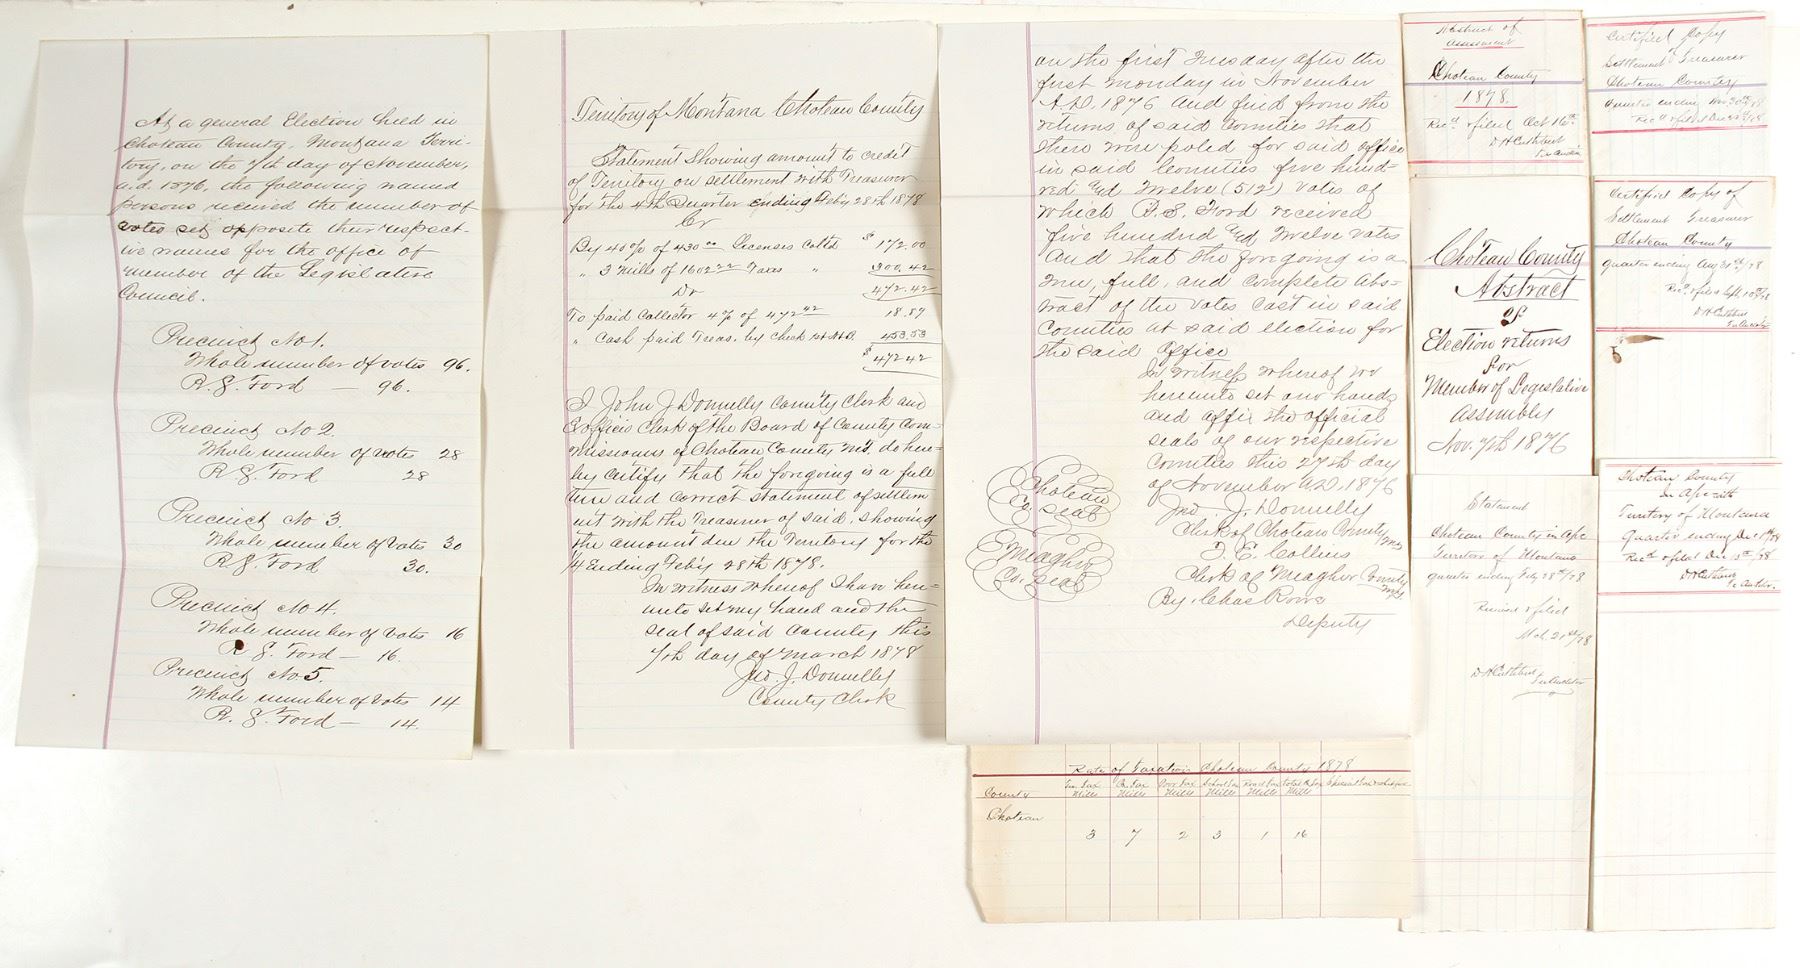 At a general Election held in
Choteau County, Montana Terri-
tory, on the 7th day of November,
a.d. 1876, the following named
persons received the number of
votes set opposite their respect-
ive names for the office of
member of the Legislative
Council.
Precinct No 1.
Whole number of votes 96.
R. S. Ford — 96.
Precinct No 2.
Whole number of votes 28
R. S. Ford 28
Precinct No 3.
Whole number of votes 30
R. S. Ford 30.
Precinct No 4.
Whole number of votes 16
R. S. Ford — 16.
Precinct No 5.
Whole number of votes 14
R. S. Ford — 14.
Territory of Montana Choteau County
Statement Showing amount to credit
of Territory on settlement with Treasurer
for the 4th Quarter ending Feby 28th 1878
Cr
By 40% of 430 00 Licenses Colltd $ 172.00
" 3 mills of 1602 22 Taxes " 300.42
Dr 472.42
To paid Collector 4% of 472 42 18.89
" Cash paid Treas. by Check 453.53
$ 472 42
I John J Donnelly County Clerk and
Exofficio Clerk of the Board of County Com-
missioners of Choteau County M.T. do here-
by certify that the foregoing is a full
true and correct statement of settlem
ent with the Treasurer of said, showing
the amount due the Territory for the
1/4 Ending Feb'y 28th 1878.
In witness whereof I have here-
unto set my hand and the
seal of said County this
7th day of March 1878
Jno. J. Donnelly
County Clerk
on the first Tuesday after the
first Monday in November
A.D. 1876 and find from the
returns of said Counties that
there were poled for said office
in said Counties five hund-
red and Twelve (512) votes of
which R. S. Ford received
five hundred and Twelve votes
And that the foregoing is a
true, full, and complete abs-
tract of the votes cast in said
Counties at said election for
the said office
In witness whereof we
hereunto set our hands
and affix the official
seals of our respective
Counties this 27th day
of November A.D. 1876
Choteau
Co. seal
Jno. J. Donnelly
Clerk of Choteau County M.T.
Meagher
Co. seal
T. E. Collins
Clerk of Meagher County M.T.
By Chas Rowe
Deputy
Rate of Taxation Choteau County 1878
County Ter. Tax Mills Co. Tax Mills Poor Tax Mills School Tax Mills Road Tax Mills Total Mills
Choteau 3 7 2 3 1 16
Abstract of
Assessment
Choteau County
1878.
Rec'd & filed Oct 16th
D H Cuthbert
Ter Auditor
Choteau County
Abstract
of
Election returns
for
Member of Legislative
assembly
Nov. 7th 1876
Statement
Choteau County in a/c
Territory of Montana
quarter ending Feby 28th/78
Received & filed
Mch 21st/78
D H Cuthbert
Ter Auditor
Certified Copy
Settlement Treasurer
Choteau County
Quarter ending Nov. 30th/78
Certified Copy of
Settlement Treasurer
Choteau County
Quarter ending Aug 31st/78
Rec'd & filed Sept
D H Cuthbert
Ter Auditor
Choteau County
In a/c with
Territory of Montana
Quarter ending
Rec'd & filed Dec
D H Cuthbert
Ter Auditor.